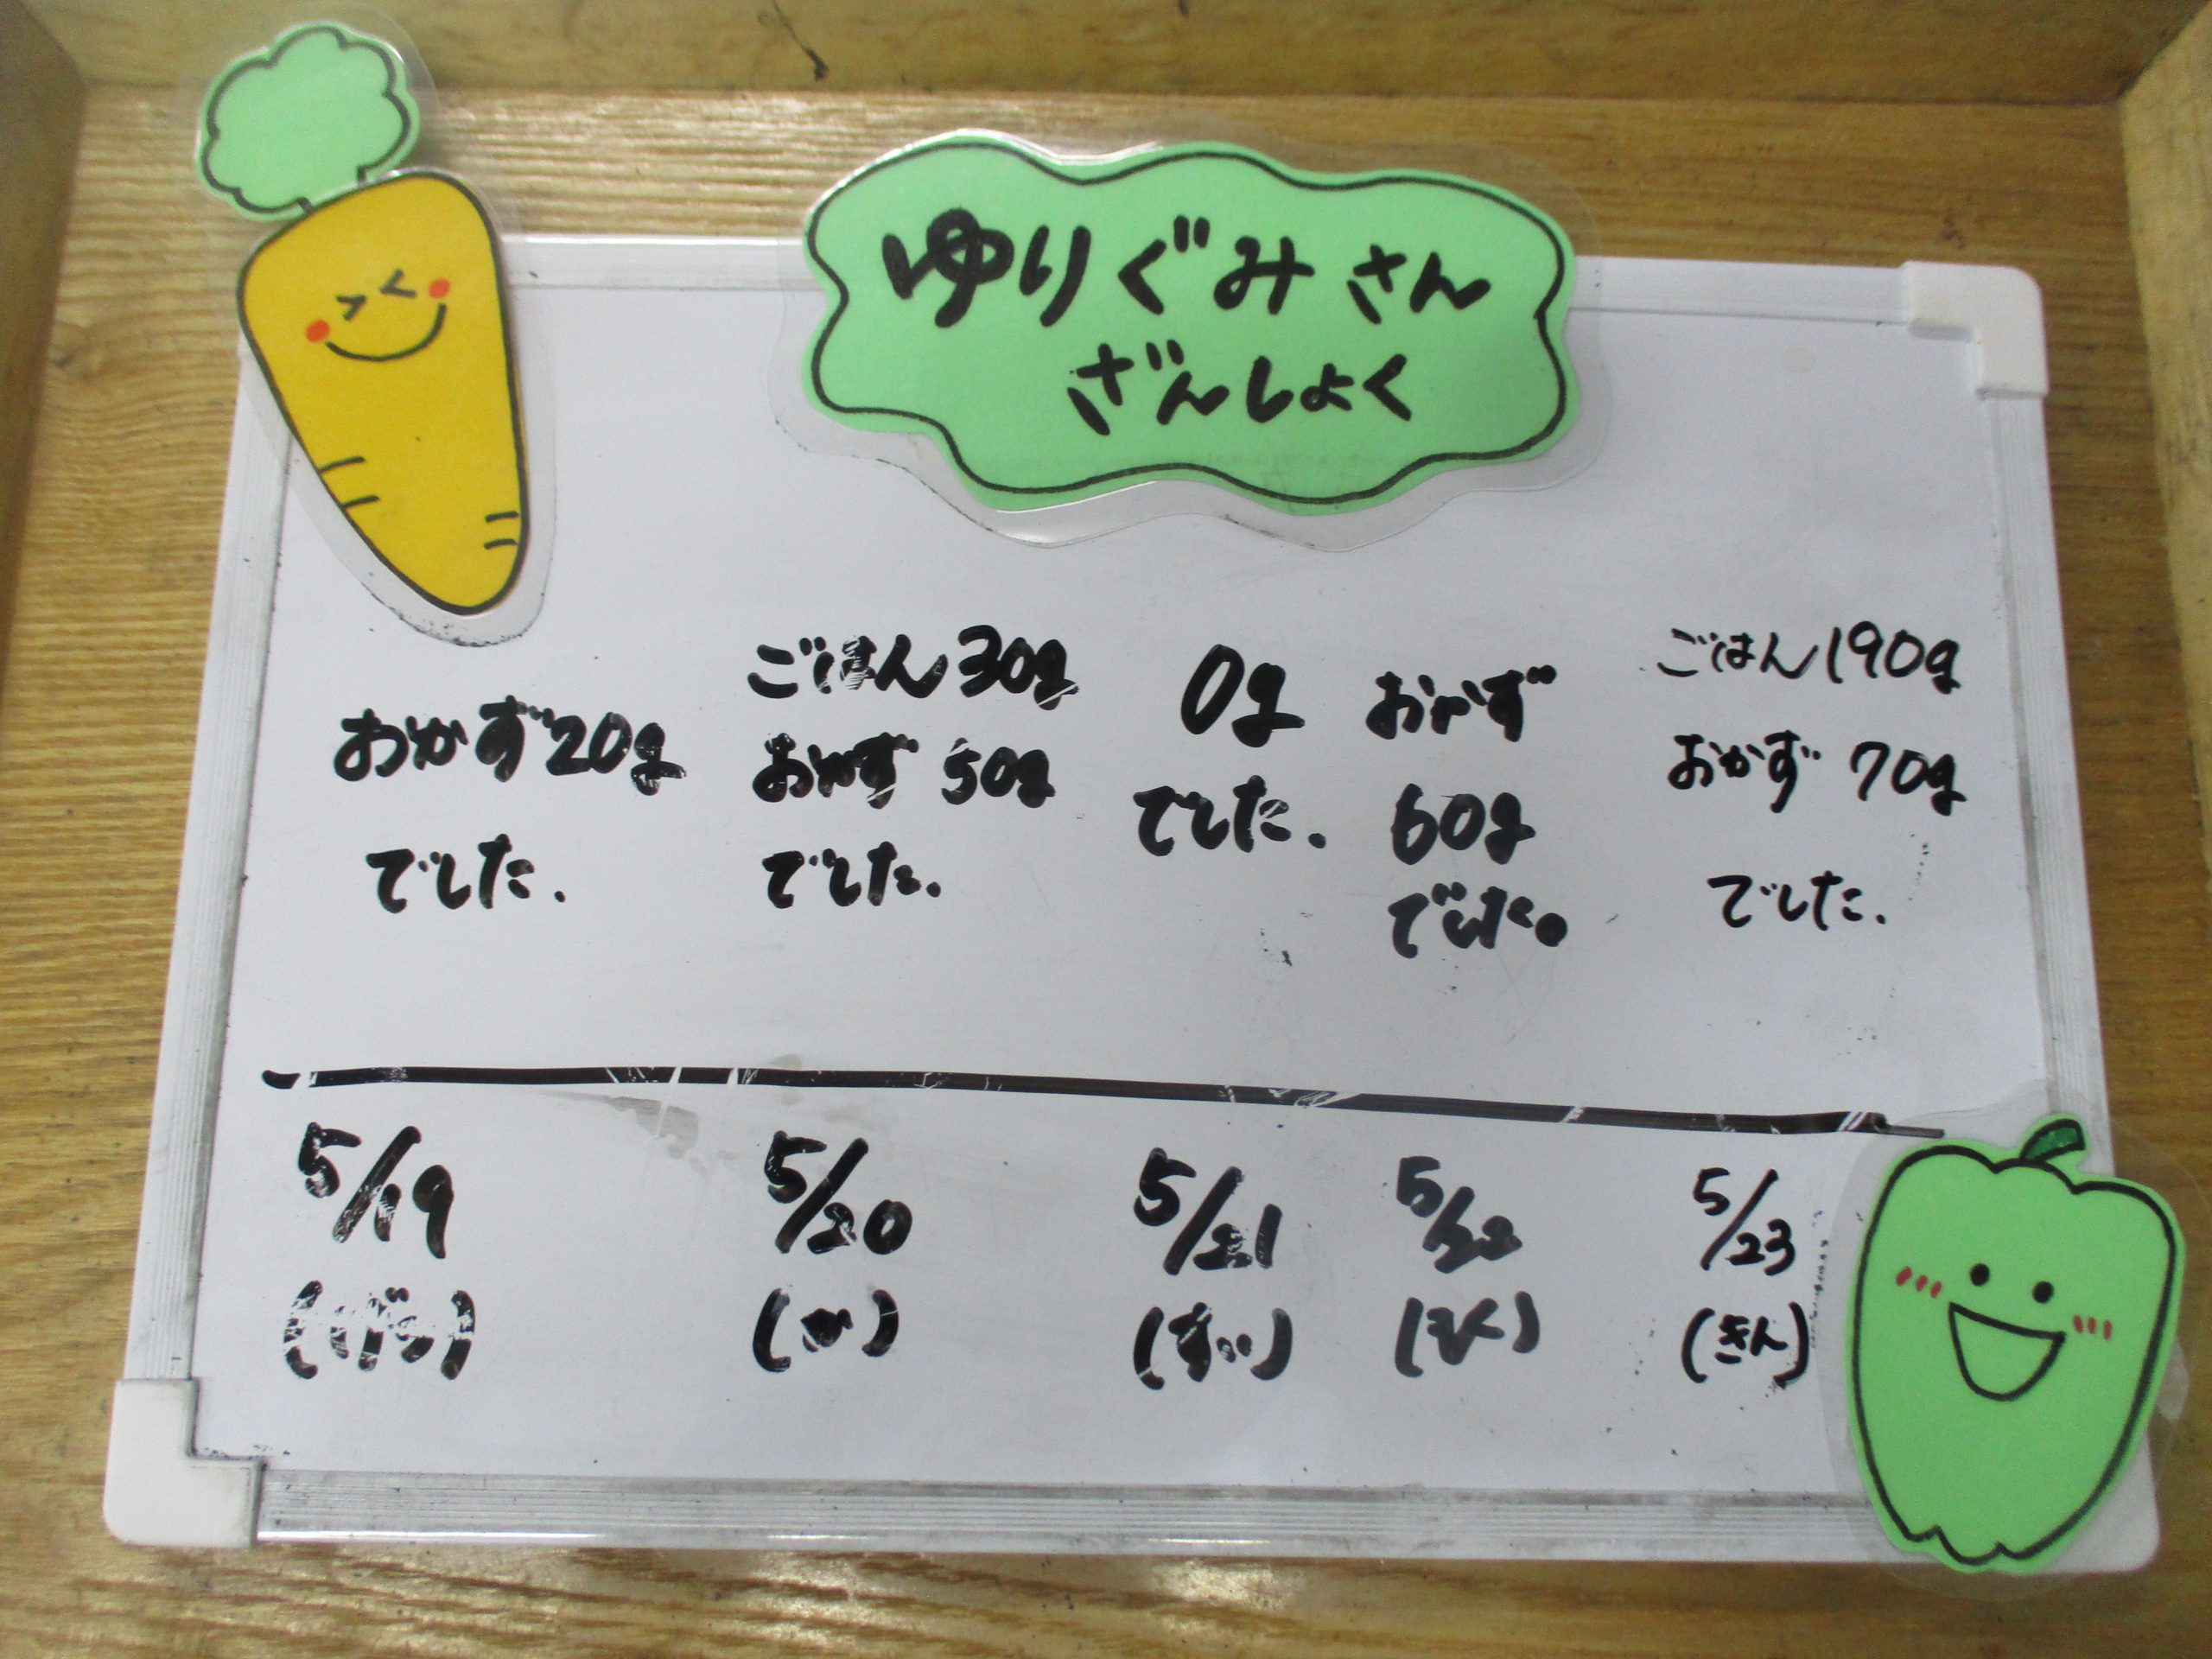 ゆりぐみさん
ざんしょく
おかず20g
でした.
ごはん30g
おかず 50g
でした.
0g
でした.
おかず
60g
でした。
ごはん190g
おかず 70g
でした.
5/19
(げつ)
5/20
(か)
5/21
(すい)
5/22
(もく)
5/23
(きん)